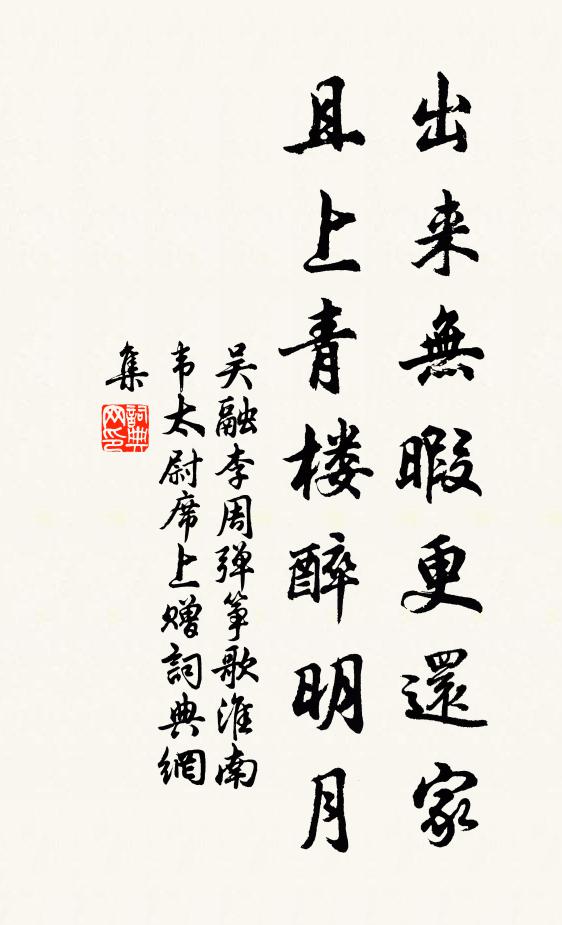 出来無暇更還家
且上青楼醉明月
吴融李周弹筝歌淮南
韦太尉席上赠詞典網
集
詞典网印